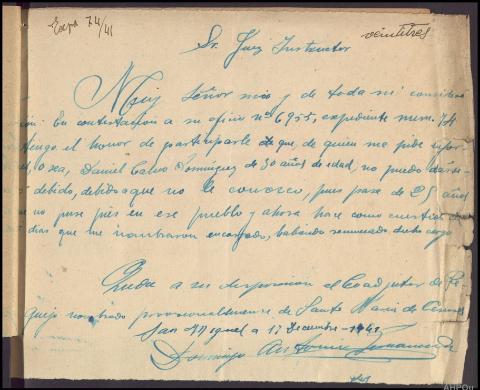 Exp. 74/41
veintitres
Sr. Juez Instructor
Muy Señor mio y de toda mi considera
ión: En contestación a su oficio nº 6955, expediente num. 74
tengo el honor de participarle de que, de quien me pide infor
o sea, Daniel Calvo Dominguez de 30 años de edad, no puedo
debido, debido a que no le conozco, pues pasa de 25 años
no puse pies en ese pueblo y ahora hace como cuestión
dias que me nombraron encargado, habiendo renunciado dicho cargo
Queda a su disposición el Coadjutor de Re
quejo nombrado provisionalmente de Santa Maria de
San Miguel a 17 Diciembre - 1941
Domingo Antonio
AHPOu